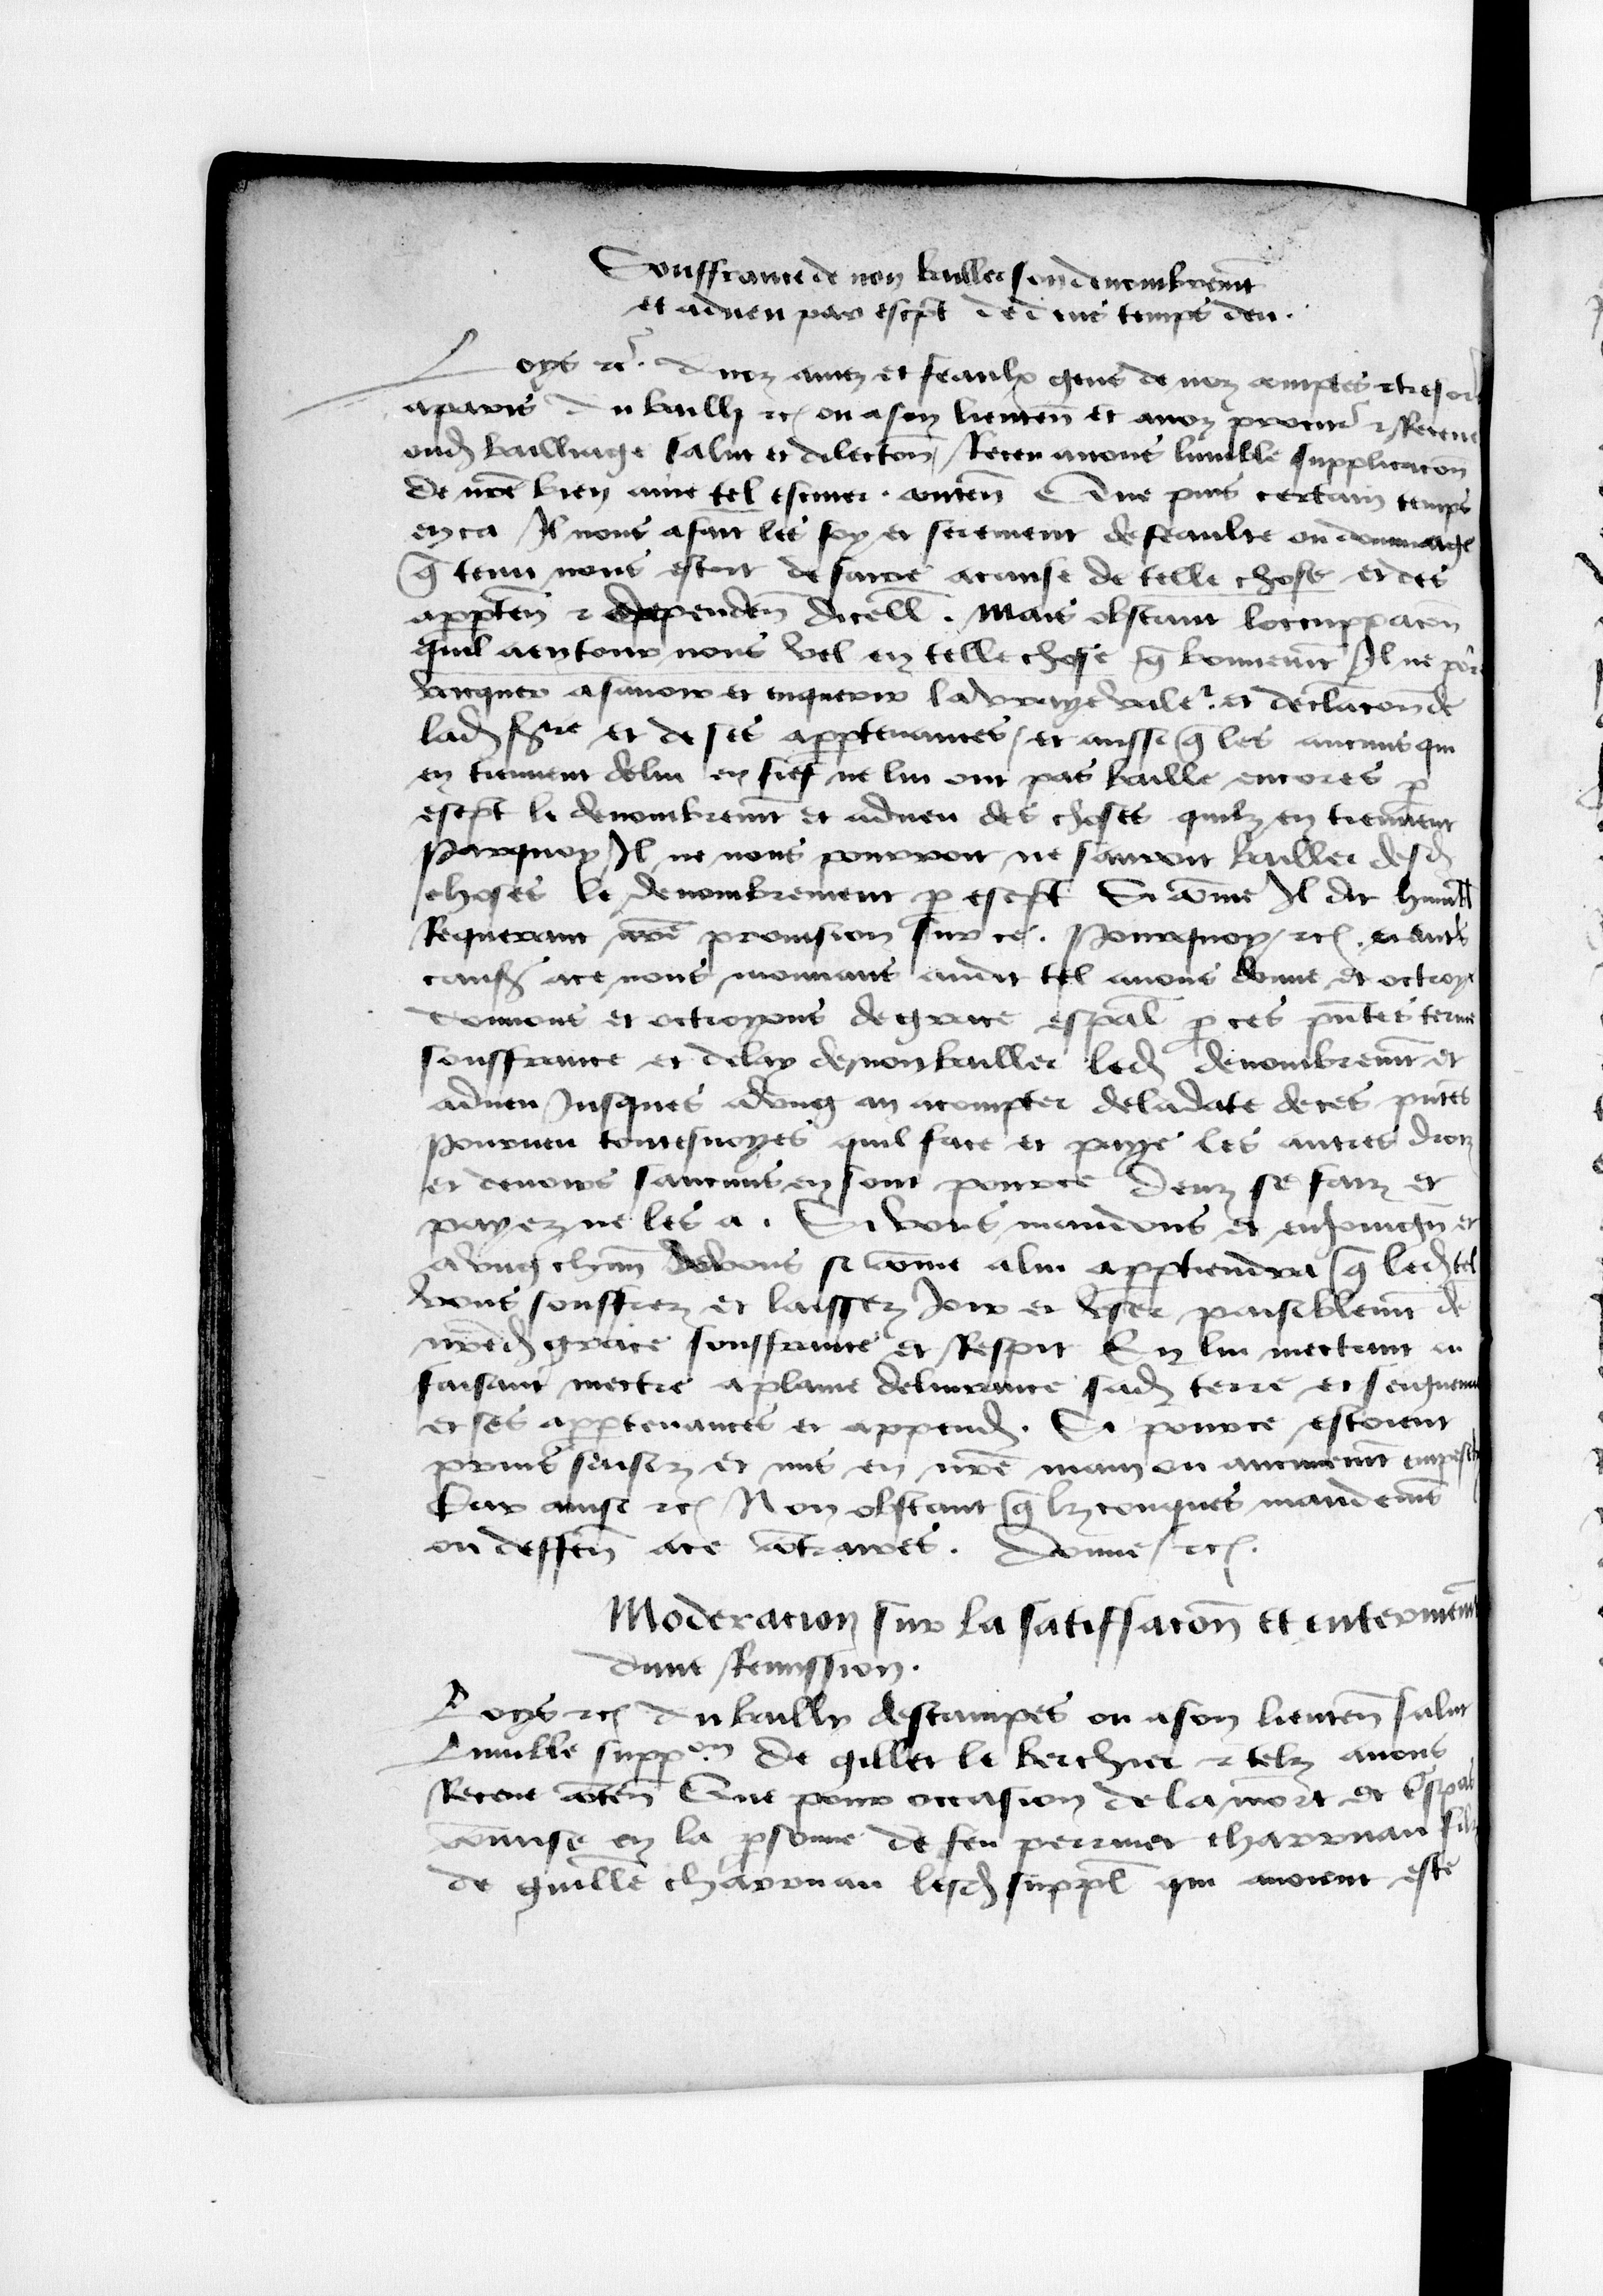 Souffrance de non bailler son denombremt
et adveu par escpt dedens temps deu.
Loys etc. A noz amez et feaulx gens de noz comptes et tresor
a paris Au bailli etc ou a son lieuten et a noz procur et Receve
oud bailliage salut et dilection Receu avons lumble supplicacon
de nre bien ame tel escuier. conten Que puis certain temps
en ca Il nous a fait les foy et serement de feaulte ou dommage
q tenu nous estoit de faire a cause de telle chose et des
apparten et dependen dicelle. Mais obstant loccuppacon
quil a entour nous vel en telle chose q bonnemt Il ne por
vacquer a savoir et enquerir la vraye vale et declaracon de
lad srie et de ses appartenances / et aussi q les aucuns qui
en tiennent de lui en fief ne lui ont pas baille encores p
escpt le denombremt et adveu des choses quilz en tiennent
Parquoy Il ne nous pourroit ne sauroit bailler desd
choses le denombrement p escpt Si come Il dit humbl
Requerant nre provision sur ce. Pourquoy / etc. et auts
causes a ce nous mouvans audit tel avons donne et octroye
donnons et octroyons de grace espal p ces pntes terme
souffrance et delay de non bailler led denombremt et
adveu Jusques a ung an a compter de la date de ces pntes
Pourveu toutesvoyes quil face et paye les autres droiz
et devoirs saucuns en sont pour ce deuz se faiz et
payez ne les a. Si vous mandons et enjoingn et
a ung chun de vous si come a lui appartiendra q led tel
vous souffrez et laissez Joir et user paisiblemt de
nred grace souffrance et Respit En lui mectant ou
faisant mectre a plaine delivrance sad terre et seigneur
et ses appartenances et append. Se pour ce estoient
prins saisiz et mis en nre main ou aucunemt empesch
Car ainsi etc Non obstant q lzconques mandemens
ou deffen a ce contraires. Donne / etc.
Moderacion sur la satiffacon et enterinemt
dune Remission.
Loys etc Au bailly destampes ou a son lieuten salut
Lumble suppon de gillet le berchier et telz avons
Receue conten Que pour occasion de la mort et
commise en la psonne de feu perrinet charruau filz
de guille charruau lesd suppl qui avoient este